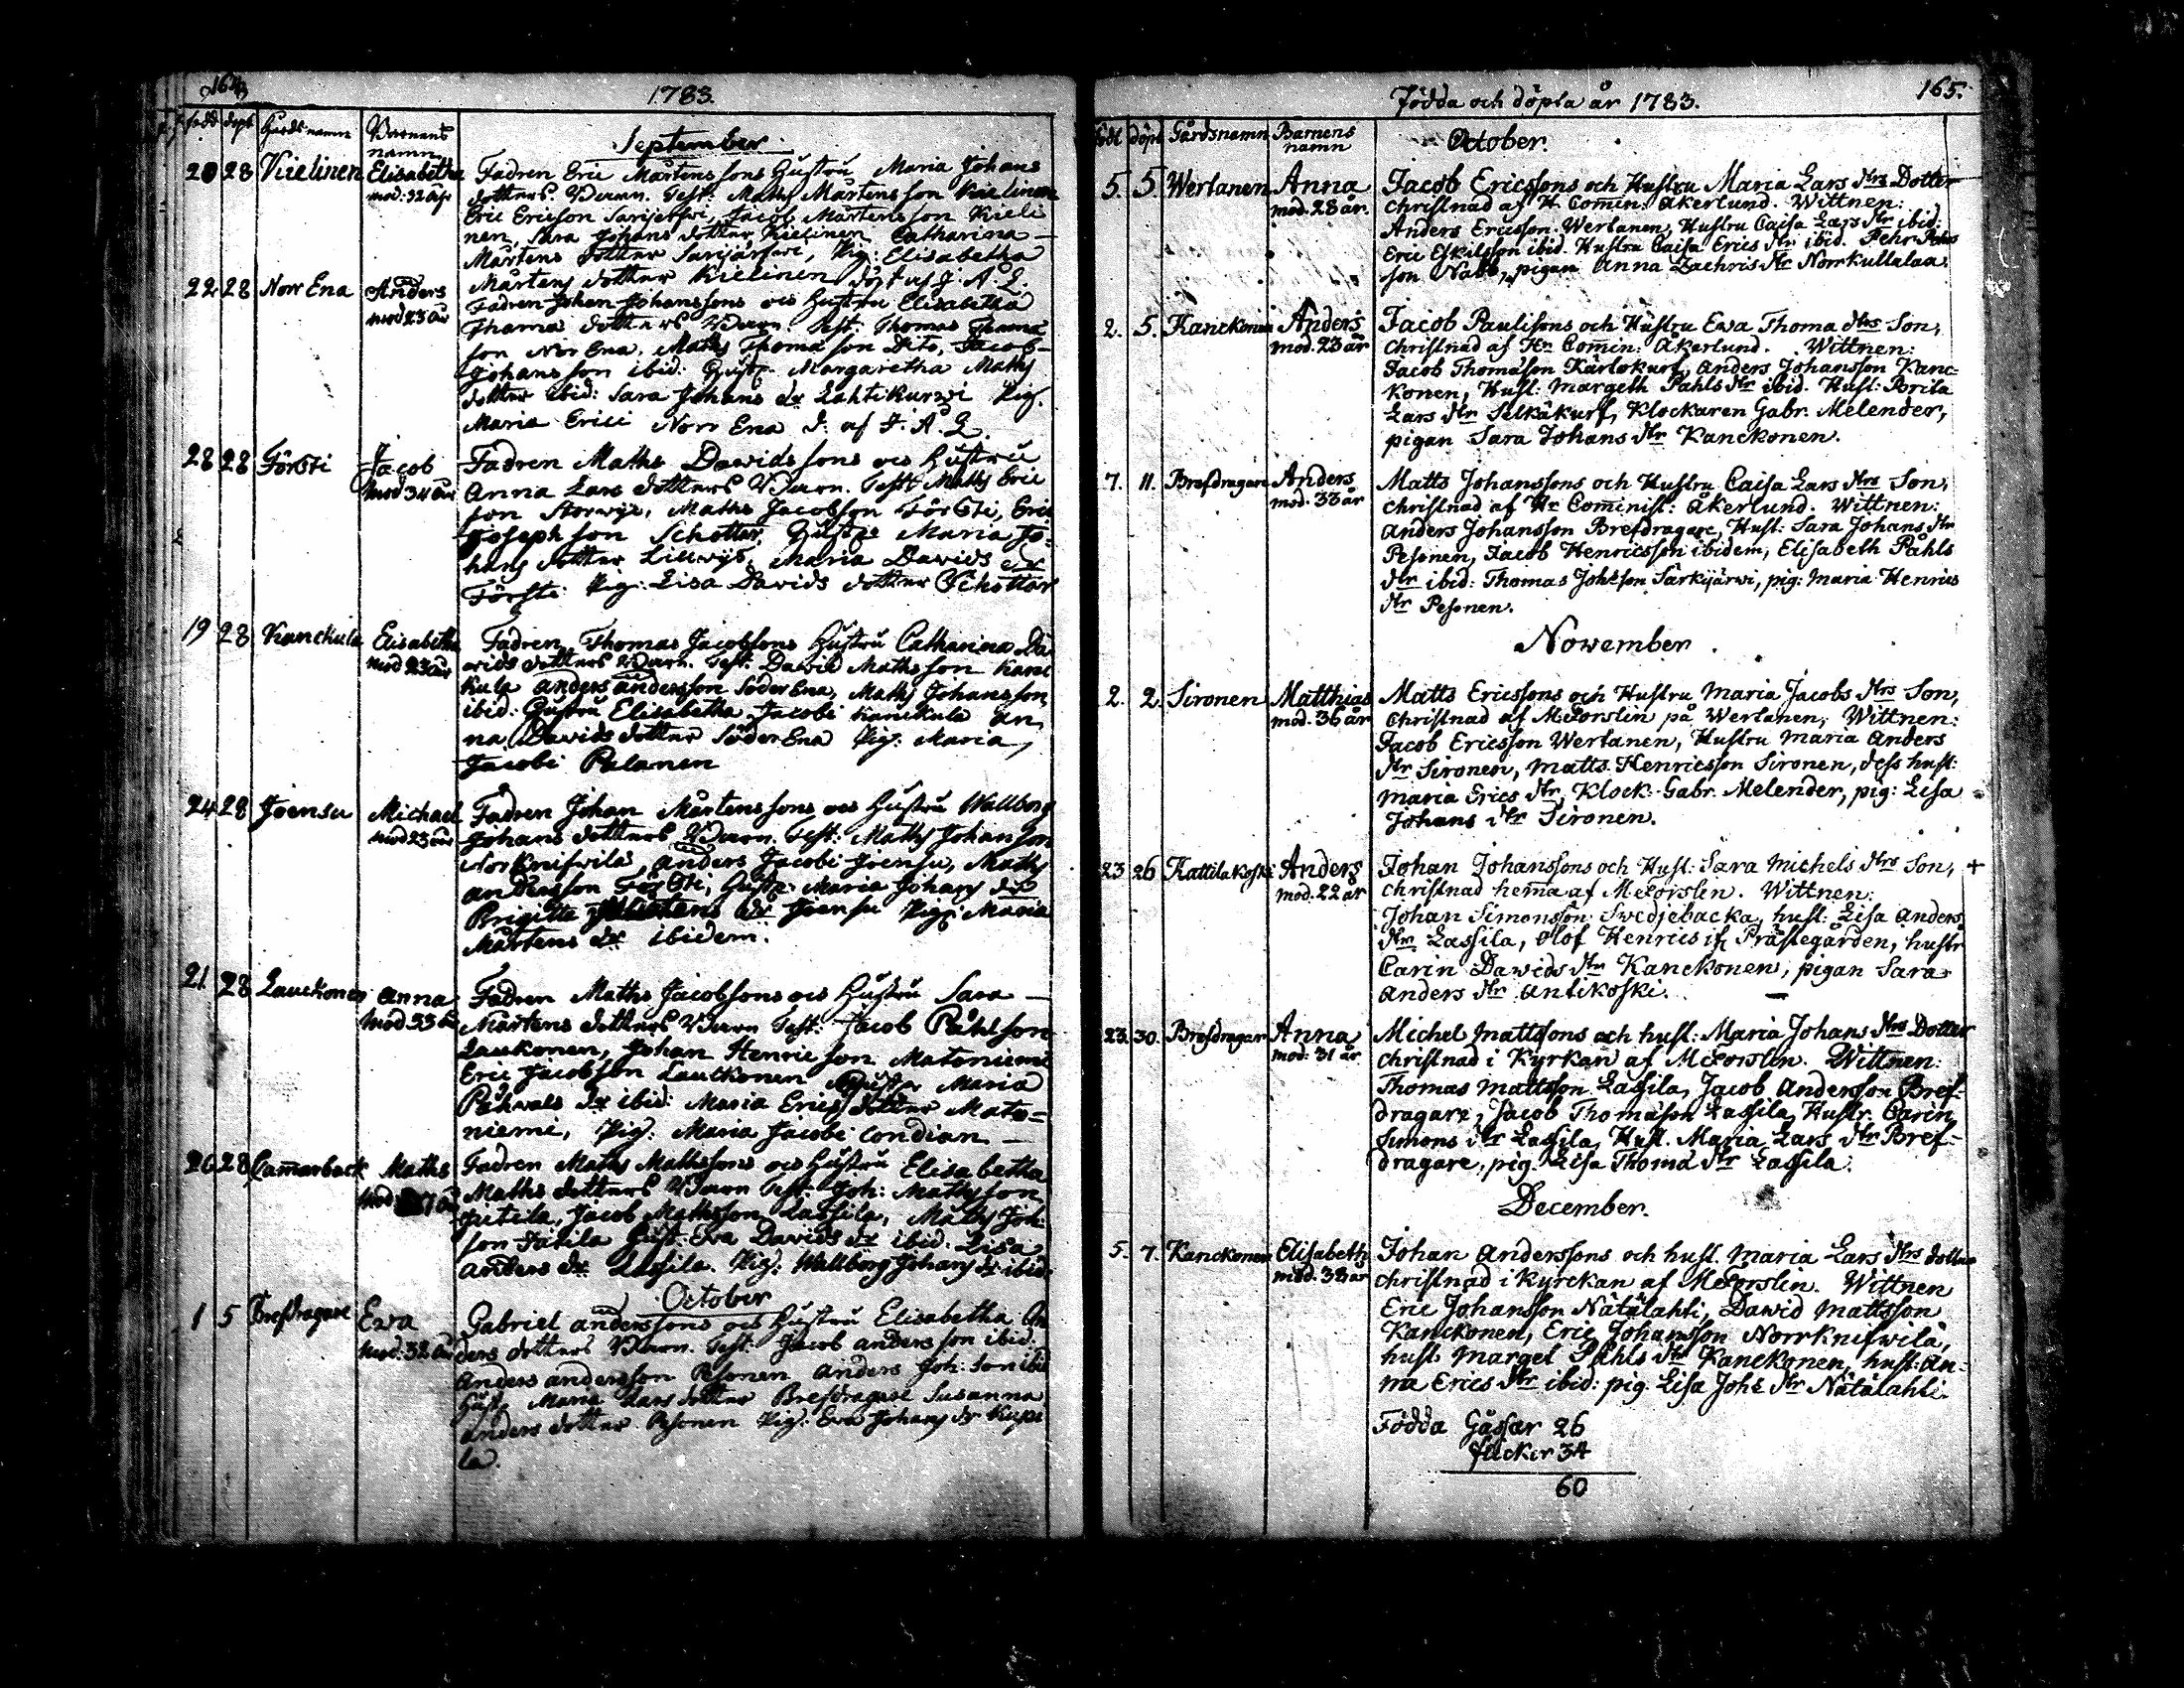 164
1783.
född döpt Gårds namn Barnens namn
September
20 28 Kielinen Elisabetha mod: 32 åhr
Fadren Eric Mårtenssons Hustru Maria Johans
dotters Barn. Test: Maths Mårtensson Kielinen
Eric Ericson Sarijerfwi, Jacob Mårtensson Kieli
nen, Sara Johans dotter Kielinen Catharina
Mårtens dotter Sarijärfwi, Pig: Elisabetha
Mårtens dotter Kielinen döpt af J. A. L.
22 28 Norr Ena Anders mod 23 år
Fadren Johan Johanssons och Hustru Elisabetha
Thoma dotters Barn Test: Thomas Thoma
son Norr Ena, Maths Thoma son Dito, Jacob
Johansson ibid: Hustr. Margaretha Maths
dotter ibid: Sara Johans dr Lahtikurwi Pig.
Maria Erici Norr Ena d. af J. A. L.
28 28 Försti Jacob mod 34 år
Fadren Maths Dawidssons och Hustru
Anna Lars dotters Barn. Test: Maths Eric
son Storwijs, Maths Jacobson Försti, Eric
Joseph son Schottar, Hustr. Maria Jo-
hans dotter Lillwijs, Maria Dawids dr
Försti Pig: Lisa Dawids dotter Schottar
19 28 Kanckula Elisabetha mod 23 år
Fadren Thomas Jacobsons Hustru Catharina Da
wids dotters Barn. Test. Dawid Mathsson Kanc
kula Anders Andersson Söder Ena, Maths Johansson
ibid: Hustru Elisabetha Jacobi Kanckula An
na Dawids dotter Söder Ena Pig: Maria
Jacobi Palanen
24 28 Joensu Michael mod 23 år
Fadren Johan Mårtenssons och Hustru Wallborg
Johans dotters Barn. Test: Maths Johansson
Norrknifwila, Anders Jacobi Joensu, Maths
Andersson Försti, Hustr. Maria Johans dr
Brigitta Mårtens dr Joensu Pig: Maria
Mårtens dr ibidem.
21 28 Lauckonen Anna mod 33 år
Fadren Maths Jacobsons och Hustru Sara
Mårtens dotters Barn Test: Jacob Påhlson
Laukonen, Johan Henric son Matoniemi
Eric Jacobson Lauckonen Hustr Maria
Påhvals dr ibid: Maria Erics dotter Mato-
niemi, Pig: Maria Jacobi Condian
26 28 Cammarback Maths
Fadren Maths Mathssons och Hustru Elisabetha
Maths dotters Barn Test. Joh: Mathsson
Jutila, Jacob Mathsson Lassila, Maths Joh:
son Jutila Hust. Eva Davids dr ibid. Lisa
Anders dr Lassila. Pig: Wallborg Johans dr ibid.
October
1 5 Brefdragare Ewa mod: 32 år
Gabriel Anderssons och Hustru Elisabetha An
ders dotters Barn. Test: Jacob Andersson ibid.
Anders Andersson Pesonen Anders Joh: Son ibid
Hust. Maria Lars dotter Brefdragare Susanna
Anders dotter Pesonen Pig. Eva Johans dr Kupi
la.
165.
Födda och döpta år 1783.
född döpt Gårdsnamn Barnens namn
October.
5. 5 Wertanen Anna mod. 28 år.
Jacob Ericssons och Hustru Maria Lars dtrs Dotter
christnad af H. Comin: Åkerlund. Wittnen:
Anders Ericsson Wertanen, Hustru Caisa Lars dtr ibid:
Eric Eskilsson ibid. Hustru Caisa Erics dtr ibid. Pehr Pehrs
son Nabb, pigan Anna Zachris dtr Norrkullalaa.
2. 5. Kanckonen Anders mod. 23 år
Jacob Paulisons och Hustru Ewa Thoma dtrs Son,
christnad af Hr Comin: Åkerlund. Wittnen:
Jacob Thomasson Karlokurf, Anders Johansson Kanc-
konen, Hust: Margeth Påhls dtr ibid. Hust: Brita
Lars dtr Selkäkurf, Klockaren Gabr. Melender,
pigan Sara Johans dtr Kanckonen.
7. 11. Brefdragare Anders mod. 33 år
Matts Johanssons och Hustru Caisa Lars dtrs Son,
christnad af Hr Cominist: Åkerlund. Wittnen:
Anders Johansson Brefdragare, Hust: Sara Johans dtr
Pesonen, Jacob Henricsson ibidem, Elisabeth Påhls
dtr ibid: Thomas Johsson Särkijärwi, pig: Maria Henrics
dtr Pesonen.
November
2. 2. Sironen Matthias mod. 36 år
Matts Ericssons och Hustru Maria Jacobs dtrs Son,
Christnad af M: Forslin på Wertanen, Wittnen:
Jacob Ericsson Wertanen, Hustru Maria Anders
dtr Sironen, Matts Henricsson Sironen, dess hust:
Maria Erics dtr, Klock: Gabr. Melender, pig: Lisa
Johans dtr Sironen.
23 26 Kattilakoski Anders mod. 22 år
Johan Johanssons och Hust: Sara Michels dtrs Son, +
christnad hemma af M: Forslin. Wittnen:
Johan Simonsson Swedjebacka, hust: Lisa Anders
dtr Lassila, Olof Henrics if. Prästegården, hustr
Carin Dawids dtr Kanckonen, pigan Sara
Anders dtr Antikoski.
23. 30. Brefdragar Anna mod: 31 år
Michel Mattssons och hust: Maria Johans dtrs Dotter
christnad i Kyrkan af M: Forslin. Wittnen:
Thomas Mattsson Lassila, Jacob Andersson Bref-
dragare, Jacob Thomasson Lassila, Hustr. Carin
Simons dtr Lassila, Hust. Maria Lars dtr Bref-
dragare, pig. Lisa Thoma dtr Lassila.
December.
5. 7. Kanckonen Elisabeth mod. 38 år
Johan Anderssons och hust. Maria Lars dtrs dotter
christnad i Kyrckan af M: Forslin. Wittnen
Eric Johansson Nätälahti, Dawid Mattsson
Kanckonen, Eric Johansson Norrknifwilä,
hust. Marget Påhls dtr Kanckonen, hust: An-
na Erics dtr ibid: pig. Lisa Johs dtr Nätälahti.
Födda Gåssar 26
flicker 34
60